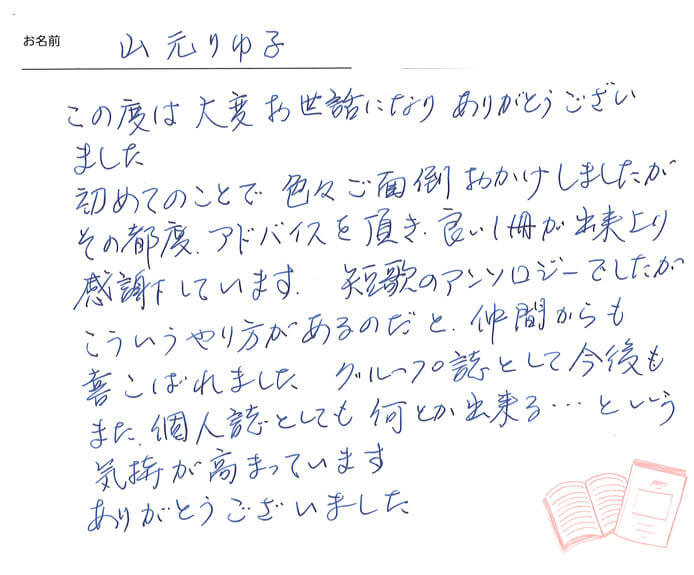 お名前 山元りゆ子
この度は大変お世話になり ありがとうござい
ました
初めてのことで 色々ご面倒おかけしましたが
その都度、アドバイスを頂き、良い1冊が出来上り
感謝しています。 短歌のアンソロジーでしたが
こういうやり方があるのだと、仲間からも
喜こばれました グループ誌として今後も
また、個人誌としても何とか出来る…という
気持が高まっています
ありがとうございました